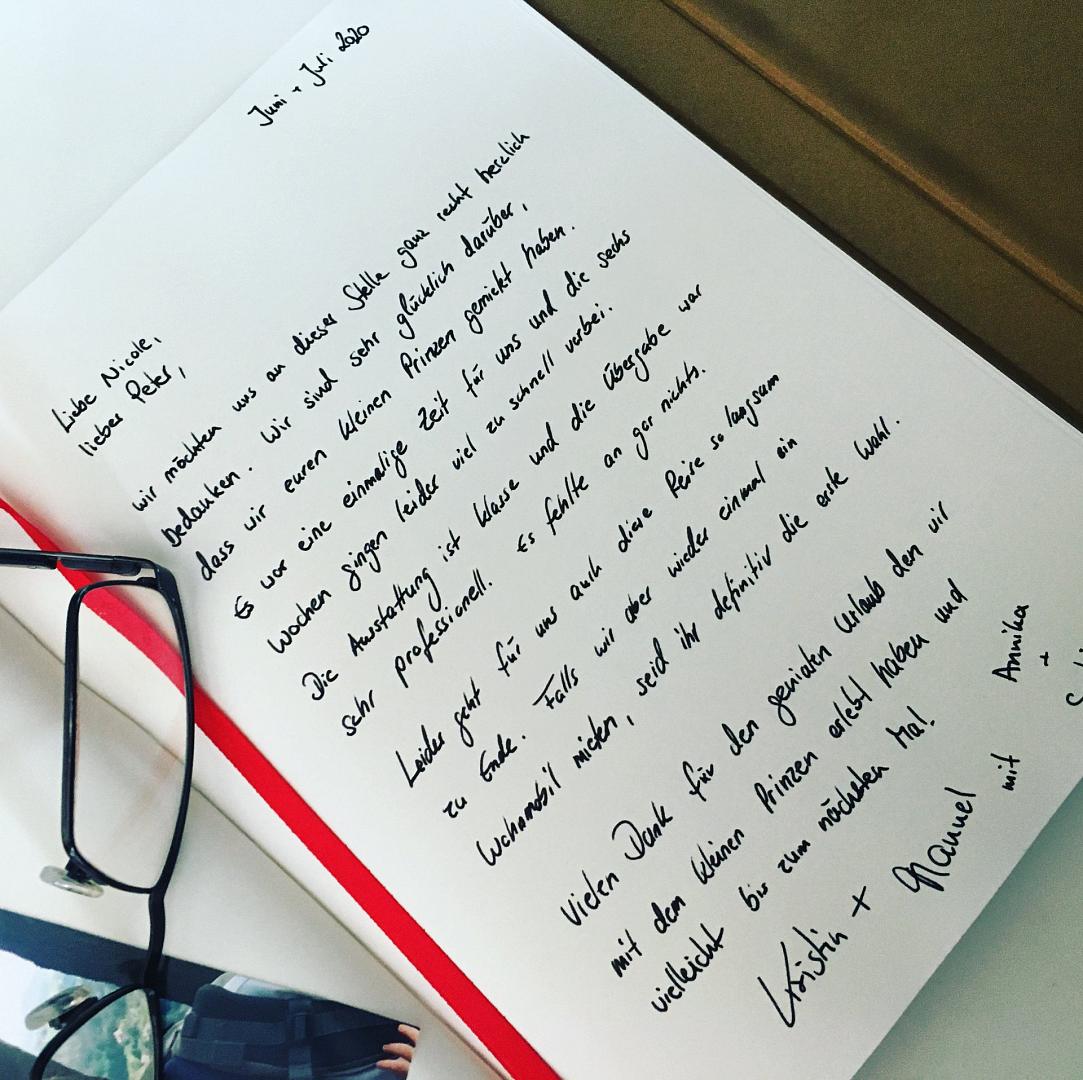 Juni + Juli 2020
Liebe Nicole,
lieber Peter,
wir möchten uns an dieser Stelle ganz recht herzlich
bedanken. Wir sind sehr glücklich darüber,
dass wir euren kleinen Prinzen gemietet haben.
Es war eine einmalige Zeit für uns und die sechs
Wochen gingen leider viel zu schnell vorbei.
Die Ausstattung ist klasse und die Übergabe war
sehr professionell. Es fehlte an gar nichts.
Leider geht für uns auch diese Reise so langsam
zu Ende. Falls wir aber wieder einmal ein
Wohnmobil mieten, seid ihr definitiv die erste Wahl.
Vielen Dank für den genialen Urlaub den wir
mit dem kleinen Prinzen erlebt haben und
vielleicht bis zum nächsten Mal.
Kristin + Manuel mit Annika
+